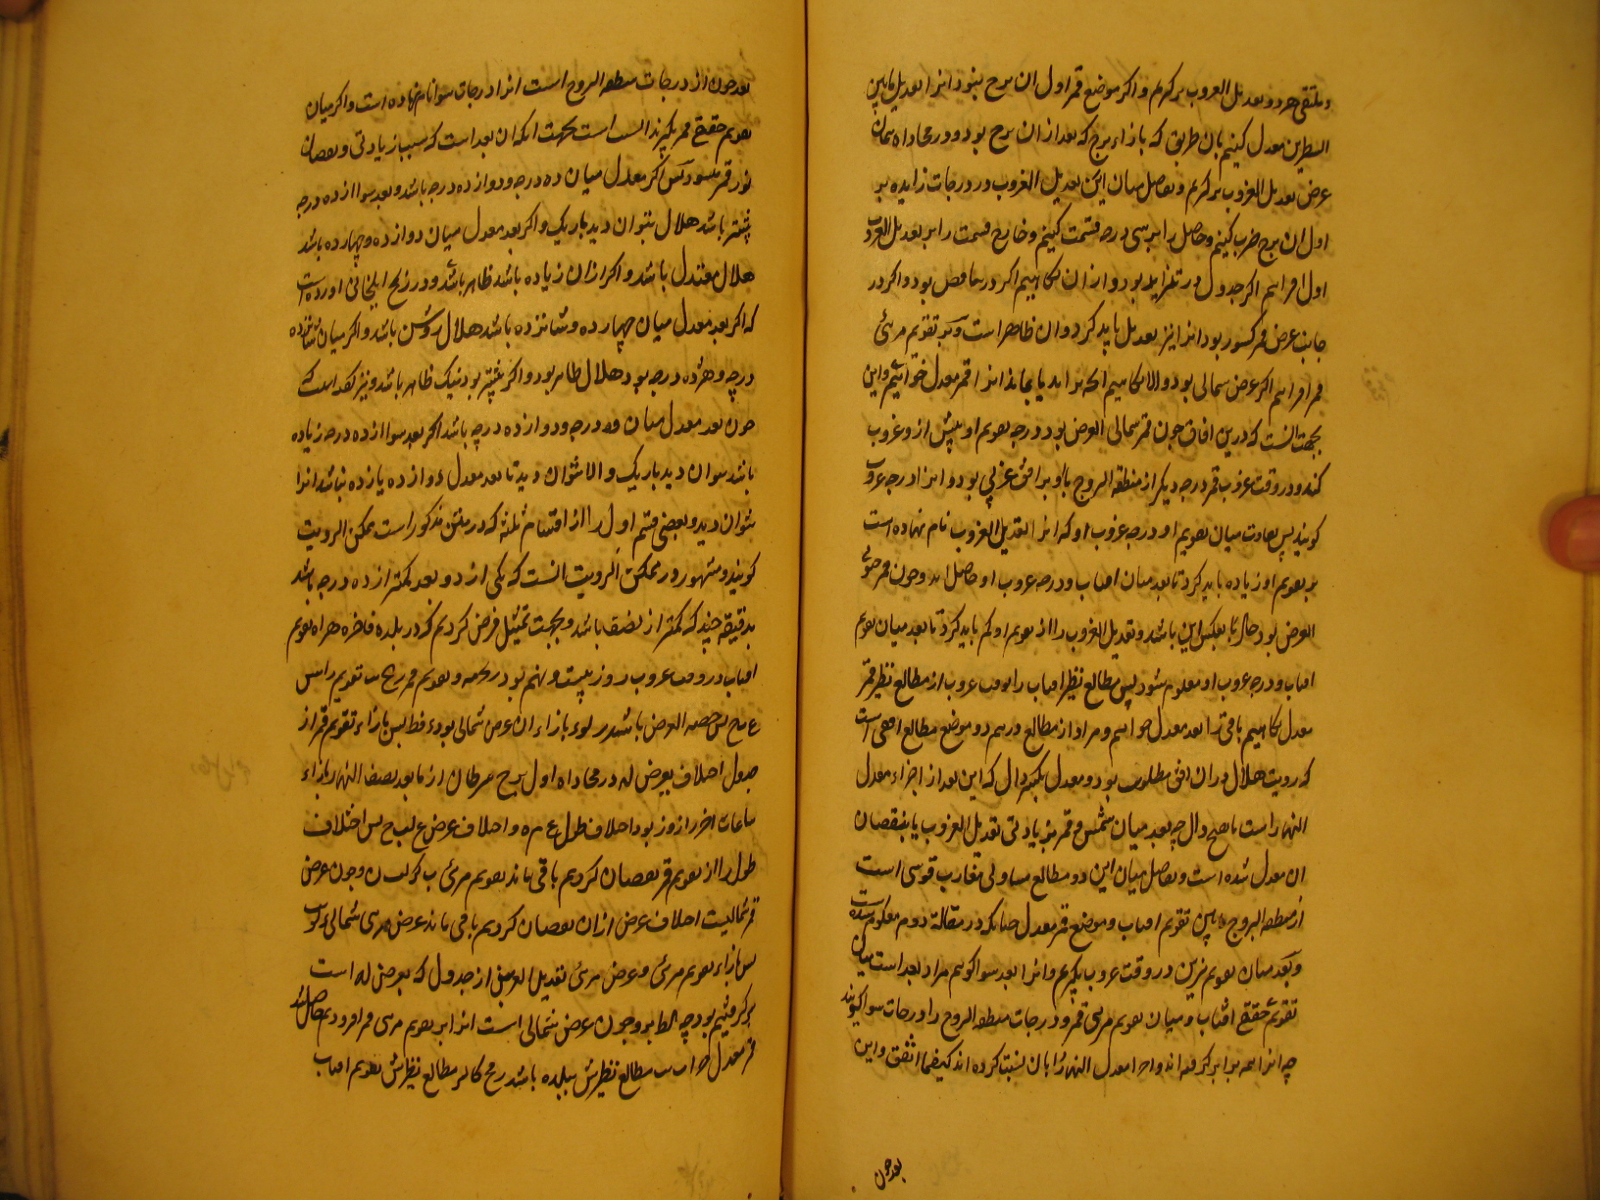 و ملتقی هر دو تعدیل الغروب برکیریم و اگر موضع قمر اول ان برج نبود انرا تعدیل مابین
السطرین معدل کنیم بان طریق که بازاء برج که بعد از ان برج بود و در محاذاه همان
عرض تعدیل الغروب برکیریم و تفاضل میان این تعدیل الغروب در درجات زایده بر
اول ان برج ضرب کنیم و حاصل را بر سی درجه قسمت کنیم و خارج قسمت را بر تعدیل الغروب
اول افزاییم اگر جدول در تزاید بود و از ان بکاهیم اگر در تناقص بود و اگر در
جانب عرض قمر کسور بود انرا نیز تعدیل باید کرد و ان ظاهر است و بر تقویم مرئی
قمر افزاییم اگر عرض شمالی بود والا بکاهیم انچه براید یا بماند انرا قمر معدل خوانیم و این
بجهت انست که درین افاق چون قمر شمالی العرض بود درجه تقویم او پیش از و غروب
کند و در وقت غروب قمر درجه دیگر از منطقة البروج با او بر افق غربی بود و انرا درجه غروب
کویند پس تفاوت میان تقویم او و درجه غروب او که انرا تعدیل الغروب نام نهاده است
بر تقویم او زیاده باید کرد تا بعد میان افتاب و درجه غروب او حاصل اید و چون قمر جنوبی
العرض بود حال بعکس این باشد و تعدیل الغروب را از تقویم او کم باید کرد تا بعد میان تقویم
افتاب و درجه غروب او معلوم شود پس مطالع نظیر افتاب را بوقت غروب از مطالع نظیر قمر
معدل بکاهیم باقی را بعد معدل خوانیم و مراد از مطالع درین دو موضع مطالع افقی است
که رویت هلال در ان افق مطلوب بود و معدل بکسر دال که این بعد از اجزاء معدل
النهار است یا بفتح دال چه بعد میان شمس و قمر بزیادتی تعدیل الغروب یا بنقصان
ان معدل شده است و تفاضل میان این دو مطالع مساوی مغارب قوسی است
از منطقة البروج مابین تقویم افتاب و موضع قمر معدل چنانکه در مقالة دوم معلوم شده است
و بعد میان تقویم نیرین در وقت غروب بگیریم و انرا بعد سوا کوییم مراد بعد است میان
تقویم حقیقی افتاب و میان تقویم مرئی قمر و درجات منطقة البروج را درجات سوا کویند
چه انرا همه برابر کرفته اند و اجزا معدل النهار را بان نسبت کرده اند کیفما اتفق و این
بعد چون
بعد چون از درجات منطقة البروج است انرا درجات سوا نام نهاده است و اگر میان
تقویم حقیقی قمر بگیرند انسب است بجهت انکه ان بعد است که سبب زیادتی و نقصان
نور قمر میشود پس اگر معدل میان ده درجه و دوازده درجه باشد و بعد سوا از ده درجه
بیشتر باشد هلال بتوان دید باریک و اگر بعد معدل میان دوازده و چهارده باشد
هلال معتدل باشد و اگر از ان زیاده باشد ظاهر باشد و در زیج ایلخانی اورده است
که اگر بعد معدل میان چهارده و شانزده باشد هلال روشن باشد و اگر میان شانزده
درجه و هژده درجه بود هلال ظاهر بود و اگر بیشتر بود نیک ظاهر باشد و نیز گفته است که
چون بعد معدل میان ده درجه و دوازده درجه باشد اگر بعد سوا از ده درجه زیاده
باشد بتوان دید باریک والا نتوان دید تا بعد معدل دوازده یازده نباشد انرا
نتوان دید و بعضی قسم اول را از اقسام ثلثه که در متن مذکور است ممکن الرویت
کویند و مشهور در ممکن الرویت انست که یکی از دو بعد کمتر از ده درجه باشد
بدقیقه چند که کمتر از نصف باشد و بجهت تمثیل فرض کردیم که در بلده فاخره هراه تقویم
افتاب در وقت غروب روز بیست و نهم بود
پس حصه العرض باشد بازاء ان عرض شمالی بود پس بازاء تقویم قمر از
جدول اختلاف بعرض له در محاذاه اول برج سرطان از ما بعد نصف النهار بازاء
ساعات اخر از روز بود اختلاف طول و اختلاف عرض پس اختلاف
طول را از تقویم قمر نقصان کردیم باقی ماند تقویم مرئی و چون عرض
قمر شمالیست اختلاف عرض از ان نقصان کردیم باقی ماند عرض مرئی شمالی
پس بازاء تقویم مرئی و عرض مرئی تعدیل الغروب از جدول که بعرض له است
برکرفتیم بود و چون عرض شمالی است انرا بر تقویم مرئی قمر افزودیم حاصل شد
قمر معدل مطالع نظیرش ببلده باشد مطالع نظیرش تقویم افتاب